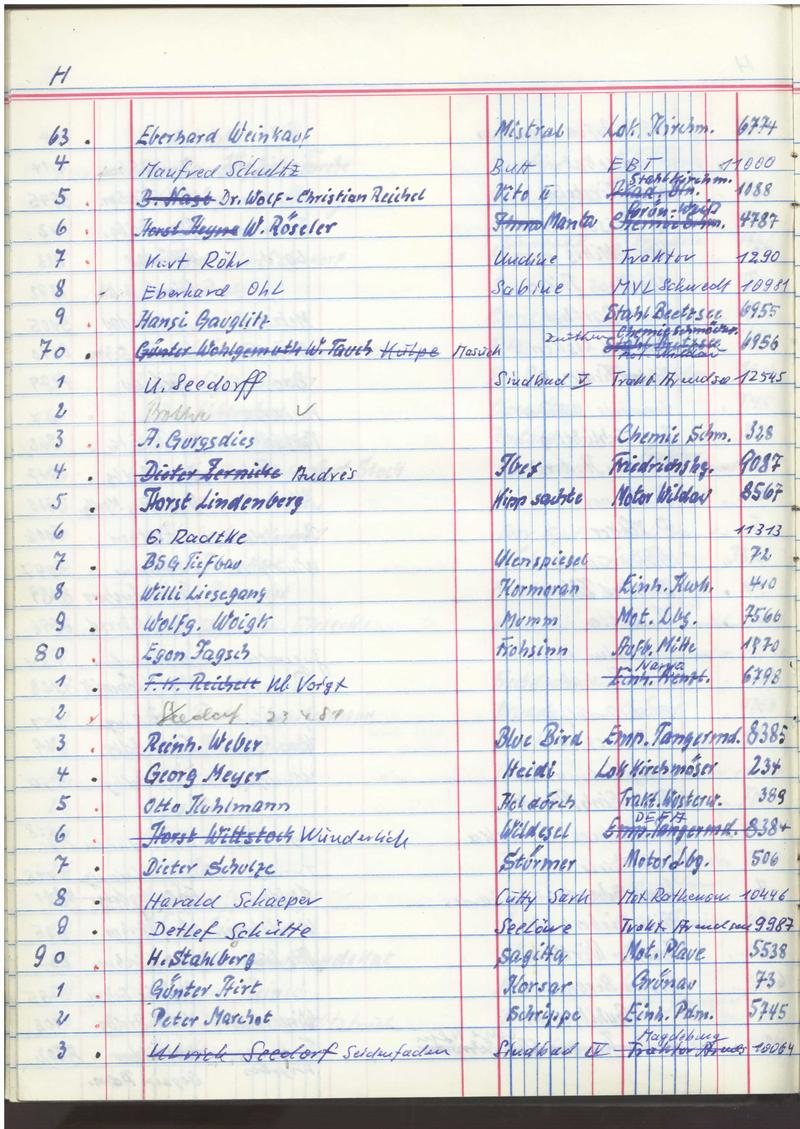 H
63 . Eberhard Weinkauf Mistral Lok. Kirchm. 6774
4 Manfred Schultz Butt EBT 11000
5 . B. Nast Dr. Wolf-Christian Reichel Vito II Stahl Kirchm. 1088
6 . Horst Heyne W. Röseler Manta Grün-weiß 4787
7 . Kurt Röhr Undine Traktor 1290
8 . Eberhard Ohl Sabine MVL Schwedt 10981
9 . Hansi Gauglitz Stahl Beetzsee 6955
70 . Günter Wohlgemuth W. Tauch Kulpe Masuch 6956
1 . U. Seedorff Sindbad V Trakt. Arendsee 12545
2 ✓
3 . A. Gurgsdies Chemie Schm. 328
4 . Dieter Zernicke Andrés Ibex Friedrichshg. 9087
5 . Horst Lindenberg Nimm sachte Motor Wildau 8567
6 G. Radtke 11313
7 . BSG Tiefbau Ulenspiegel 72
8 . Willi Liesegang Kormoran Einh. 410
9 . Wolfg. Woigk Mumm Mot. Dbg. 7566
80 . Egon Tagsch Frohsinn Aufb. Mitte 1970
1 . F.K. Reichelt Ulb Voigt Narva 6798
2 . Seedorf 23.4.81
3 . Reinh. Weber Blue Bird Emp. Tangermd. 8385
4 . Georg Meyer Heidi Lok Kirchmöser 234
5 . Otto Kuhlmann Trakt. Wusterw. 389
6 . Horst Wittstock Wünderlich Wildesel DEFA Emp. Tangermd. 8384
7 . Dieter Schulze Stürmer Motor Dbg. 506
8 . Harald Schaeper Cutty Sark Mot. Rathenow 10446
9 . Detlef Schütte Seelöwe Trakt. Arendsee 9987
90 . H. Stahlberg Sagitta Mot. Plaue 5538
1 . Günter Hirt Korsar Grünau 73
2 . Peter Marchot Schrippe Einh. Pdm. 5745
3 . Ulrich Seedorf Seidenfaden Sindbad IV Magdeburg Traktor Arends 10064